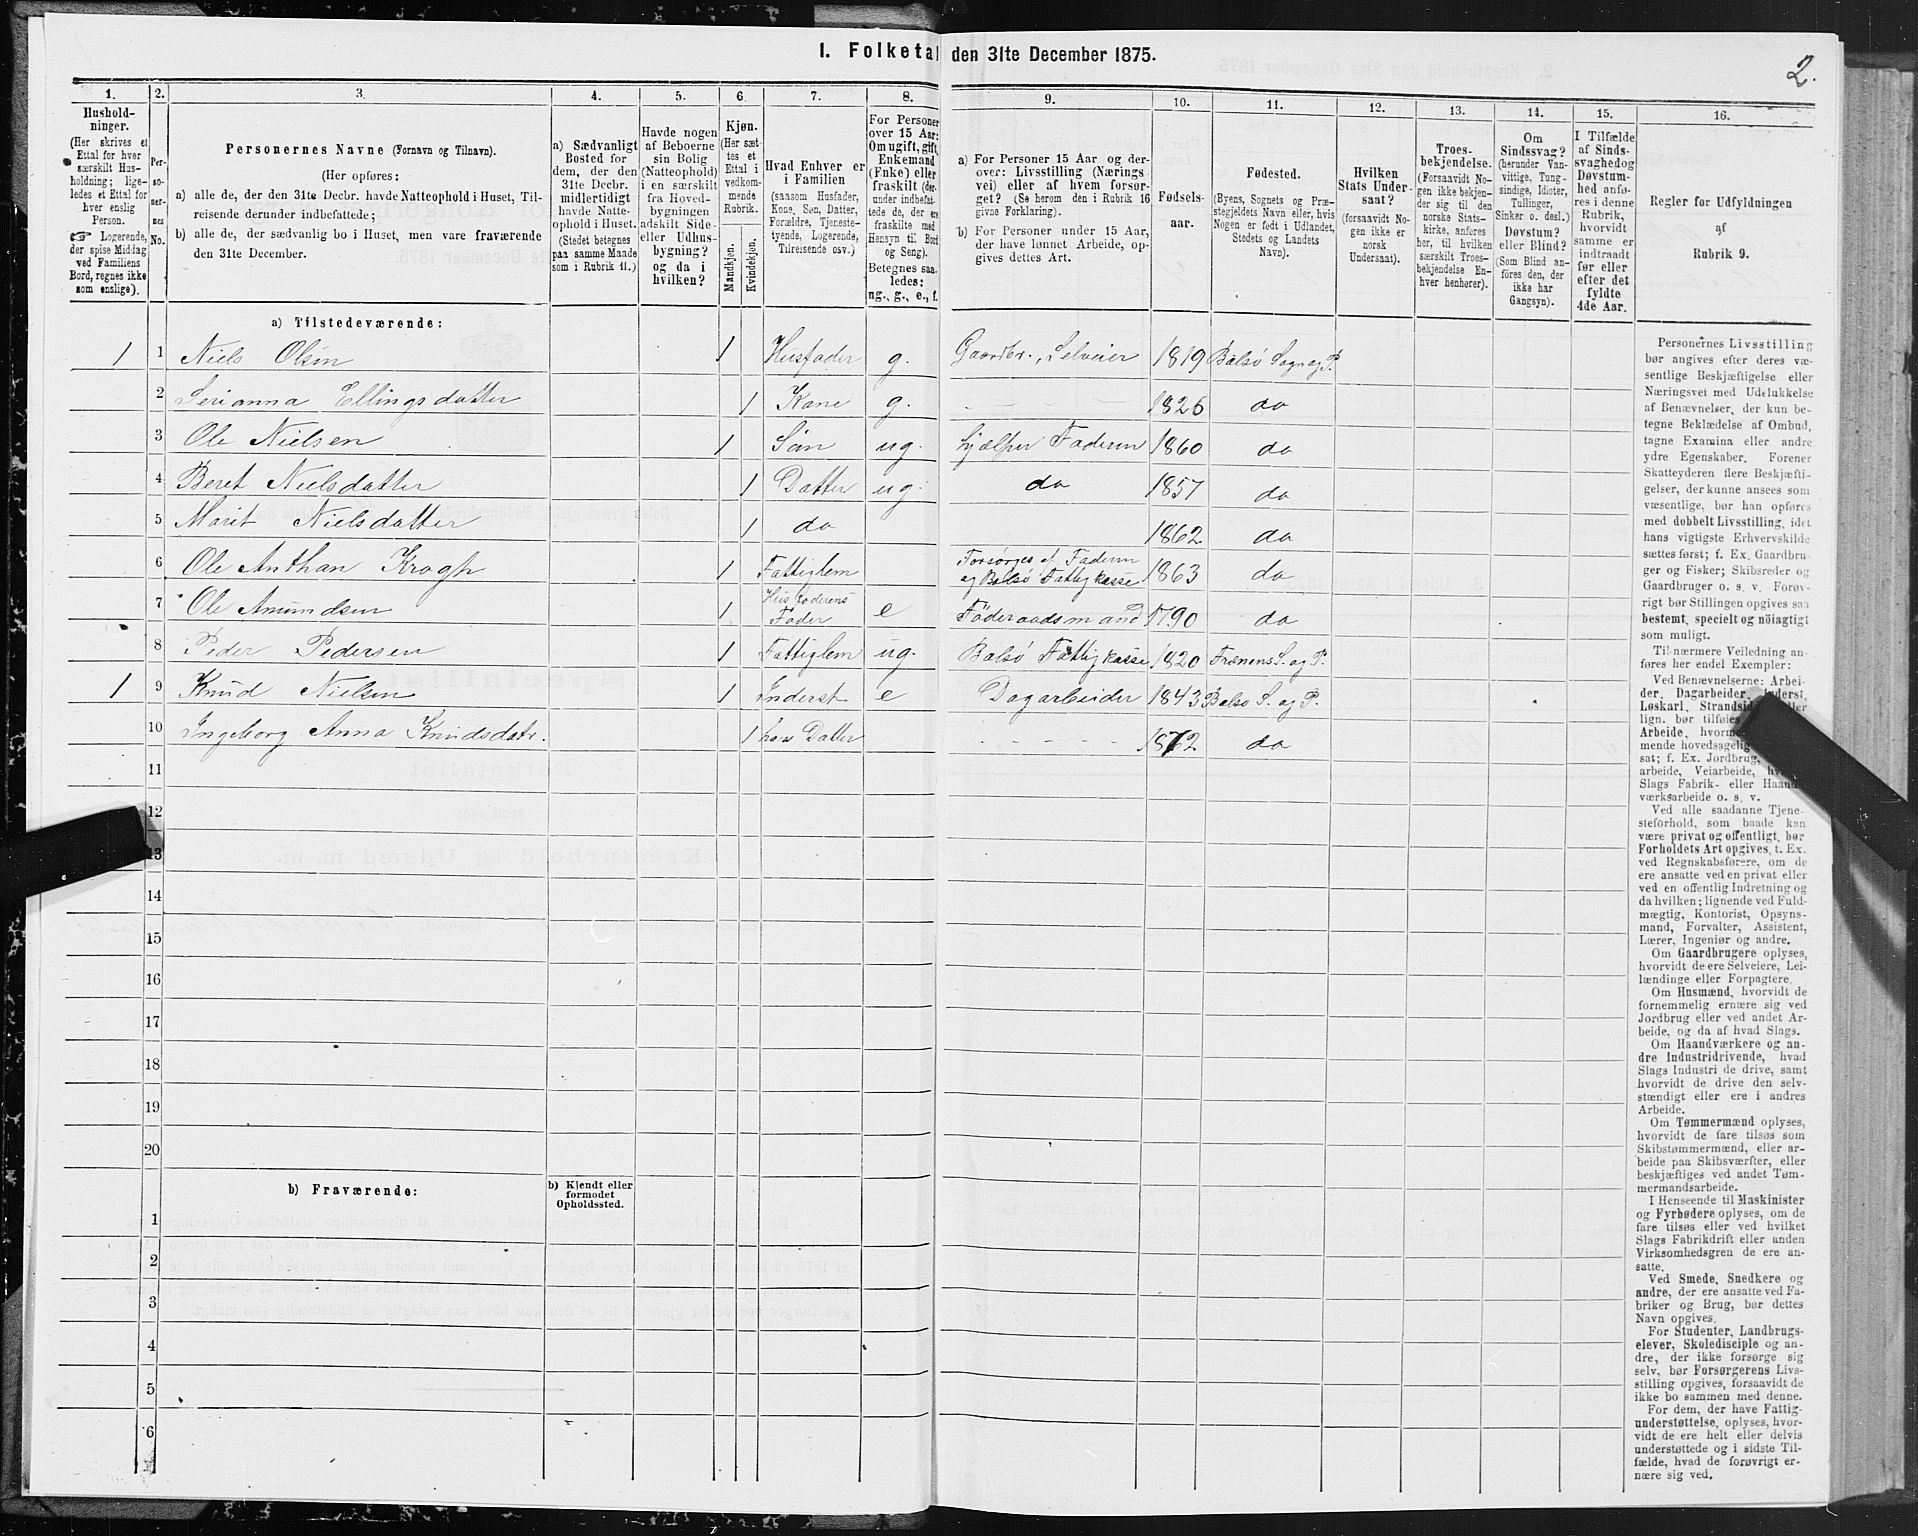 1. Folketal den 31te December 1875.
2.
1.
Hushold-
ninger.
(Her skrives et
Ettal for hver
særskilt Hus-
holdning; lige-
ledes et Ettal for
hver enslig
Person.
☞ Logerende,
der spise Middag
ved Familiens
Bord, regnes ikke
som enslige).
2.
Per-
so-
ner-
nes
No.
3.
Personernes Navne (Fornavn og Tilnavn).
(Her opføres:
a) alle de, der den 31te Decbr. havde Natteophold i Huset, Til-
reisende derunder indbefattede;
b) alle de, der sædvanlig bo i Huset, men vare fraværende
den 31te December.
4.
a) Sædvanligt
Bosted for
dem, der den
31te Decbr.
midlertidigt
havde Natte-
ophold i Huset.
(Stedet betegnes
paa samme Maade
som i Rubrik 11.)
5.
Havde nogen
af Beboerne
sin Bolig
(Natteophold)
i en særskilt
fra Hoved-
bygningen
adskilt Side-
eller Udhus-
bygning?
og da i
hvilken?
6.
Kjøn.
(Her sæt-
tes et
Ettal i
vedkom-
mende
Rubrik.
Mandkjøn.
Kvindekjøn.
7.
Hvad Enhver er
i Familien
(saasom Husfader,
Kone, Søn, Datter,
Forældre, Tjeneste-
tyende, Logerende,
Tilreisende osv.)
8.
For Personer
over 15 Aar:
Om ugift, gift,
Enkemand
(Enke) eller
fraskilt (der-
under indbefat-
tede de, der ere
fraskilte med
Hensyn til Bord
og Seng).
Betegnes saa-
ledes:
ug., g., e., f.
9.
a) For Personer 15 Aar og der-
over: Livsstilling (Nærings
vei) eller af hvem forsør-
get? (Se herom den i Rubrik 16
givne Forklaring).
b) For Personer under 15 Aar,
der have lønnet Arbeide, op-
gives dettes Art.
10.
Fødsels-
aar.
11.
Fødested.
(Byens, Sognets og Præ-
stegjeldets Navn eller, hvis
Nogen er født i Udlandet,
Stedets og Landets
Navn).
12.
Hvilken
Stats Under-
saat?
(forsaavidt No-
gen ikke er
norsk
Undersaat).
13.
Troes-
bekjendelse.
(Forsaavidt No-
gen ikke bekjen-
der sig til den
norske Stats-
kirke, anføres
her, til hvilken
særskilt Troes-
bekjendelse En-
hver henhører).
14.
Om
Sindssvag?
(herunder Van-
vittige, Tung-
sindige, Idioter,
Tullinger,
Sinker o. desl.)
Døvstum?
eller Blind?
(Som Blind an-
føres den, der
ikke har
Gangsyn).
15.
I Tilfælde
af Sinds-
svaghedog
Døvstum-
hed anfø-
res i denne
Rubrik,
hvorvidt
samme er
indtraadt
før eller
efter det
fyldte
4de Aar.
16.
Regler for Udfyldningen
af
Rubrik 9.
a) Tilstedeværende:
1 1 Niels Olsen 1 Husfader g. Gaardbr., Selveier 1819 Bolsø Sogn og P.
2 Serianna Ellingsdatter 1 Kone g. - - - 1826 do
3 Ole Nielsen 1 Søn ug. hjælper Faderen 1860 do
4 Beret Nielsdatter 1 Datter ug. do 1857 do
5 Marit Nielsdatter 1 do 1862 do
6 Ole Anthon Krogh 1 Fattiglem Forsørges af Faderen
og Bolsø Fattigkasse 1863 do
7 Ole Amundsen 1 Husfaderens
Fader e Föderaadsmand 1790 do
8 Peder Pedersen 1 Fattiglem ug. Bolsø Fattigkasse 1820 Frænens S. og P.
1 9 Knud Nielsen 1 Inderst e Dagarbeider 1843 Bolsø S. og P.
10 Ingeborg Anna Knudsdatr. 1 hans Datter - - - - 1872 do
11
12
13
14
15
16
17
18
19
20
b) Fraværende:
b) Kjendt eller
formodet
Opholdssted.
1
2
3
4
5
6
Personernes Livsstilling
bør angives efter deres væ-
sentlige Beskjæftigelse eller
Næringsvei med Udelukkelse
af Benævnelser, der kun be-
tegne Beklædelse af Ombud,
tagne Examina eller andre
ydre Egenskaber. Forener
Skatteyderen flere Beskjæfti-
gelser, der kunne ansees som
væsentlige, bør han opføres
med dobbelt Livsstilling, idet
hans vigtigste Erhvervskilde
sættes først; f. Ex. Gaardbru-
ger og Fisker; Skibsreder og
Gaardbruger o. s. v. Forøv-
rigt bør Stillingen opgives saa
bestemt, specielt og nøiagtigt
som muligt.
Til nærmere Veiledning an-
føres her endel Exempler:
Ved Benævnelserne: Arbei-
der, Dagarbeider, Inderst,
Løskarl, Strandsid eller
lign. bør tilføies
Arbeide, hvorm
mende hovedsagelig
sat; f. Ex. Jordbrug,
arbeide, Veiarbeide,
Slags Fabrik- eller Haand-
værksarbeide o. s. v.
Ved alle saadanne Tjene-
steforhold, som baade kan
være privat og offentligt, bør
Forholdets Art opgives, t. Ex.
ved Regnskabsførere, om de
ere ansatte ved en privat eller
ved en offentlig Indretning og
da hvilken; lignende ved Fuld-
mægtig, Kontorist, Opsyns-
mand, Forvalter, Assistent,
Lærer, Ingeniør og andre.
Om Gaardbrugere oplyses,
hvorvidt de ere Selveiere, Lei-
lændinge eller Forpagtere.
Om Husmænd, hvorvidt de
fornemmelig ernære sig ved
Jordbrug eller ved andet Ar-
beide, og da af hvad Slags.
Om Haandværkere og an-
dre Industridrivende, hvad
Slags Industri de drive, samt
hvorvidt de drive den selv-
stændigt eller ere i andres
Arbeide.
Om Tømmermænd oplyses,
hvorvidt de fare tilsøs som
Skibstømmermænd, eller ar-
beide paa Skibsværfter, eller
beskjæftiges ved andet Tøm-
mermandsarbeide.
I Henseende til Maskinister
og Fyrbødere oplyses, om de
fare tilsøs eller ved hvilket
Slags Fabrikdrift eller anden
Virksomhedsgren de ere an-
satte.
Ved Smede, Snedkere og
andre, der ere ansatte ved Fa-
briker og Brug, bør dettes
Navn opgives.
For Studenter, Landbrugs-
elever, Skoledisciple og an-
dre, der ikke forsørge sig
selv, bør Forsørgerens Livs-
stilling opgives, forsaavidt de
ikke bo sammen med denne.
For dem, der have Fattig-
understøttelse, oplyses, hvor-
vidt de ere helt eller delvis
understøttede og i sidste Til-
fælde, hvad de forøvrigt er-
nære sig ved.